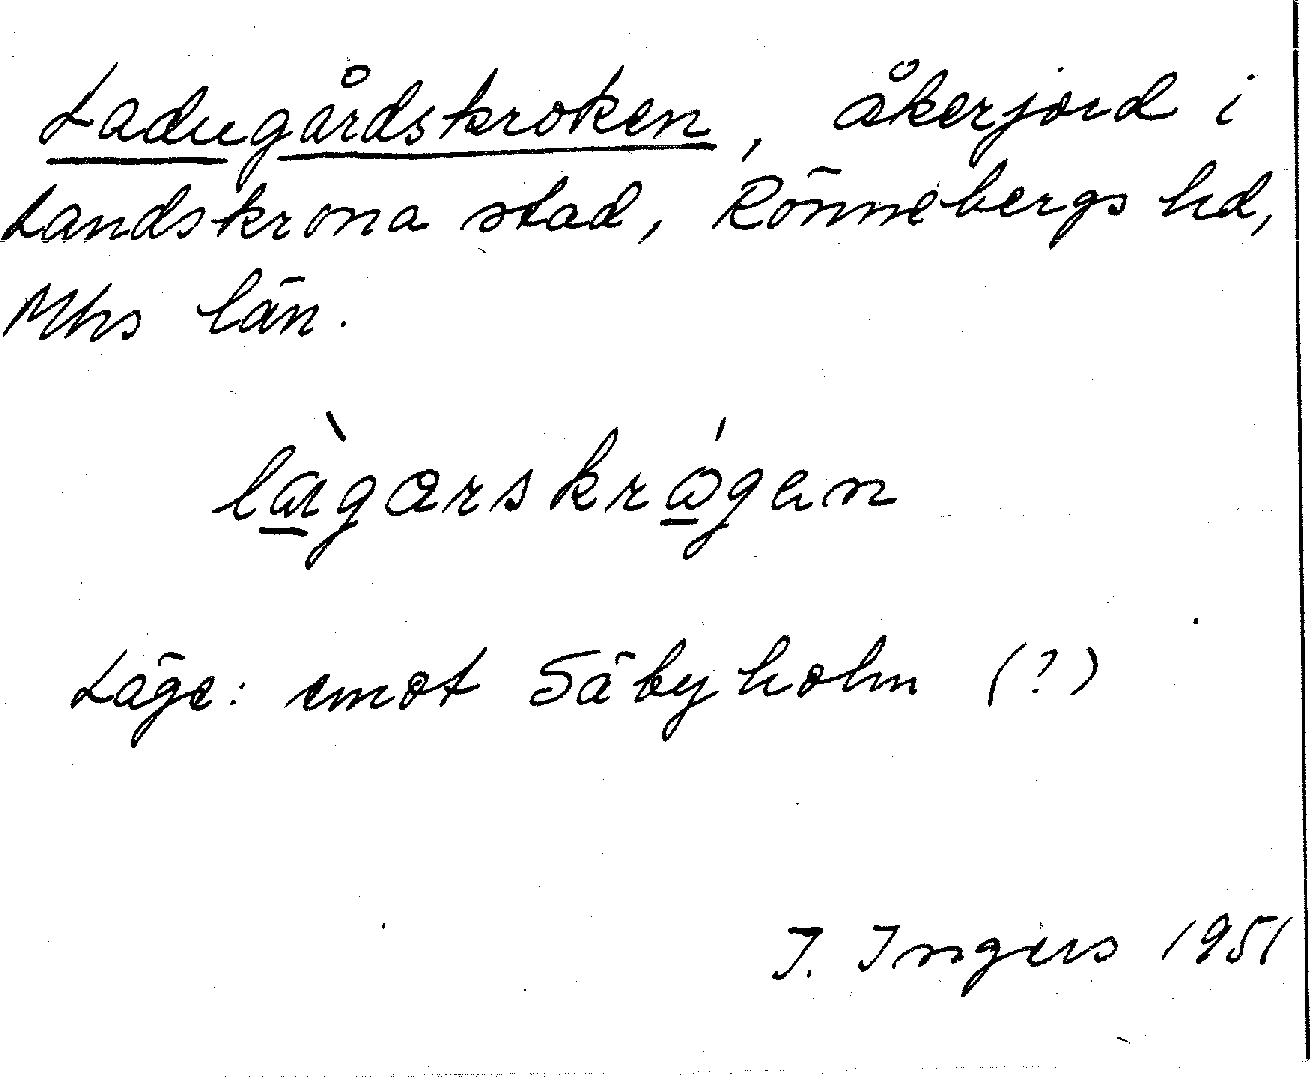 Ladugårdskroken, åkerjord i
Landskrona stad, Rönnebergs hd,
Mhs län.
làgarskrógen
Läge: emot Säbyholm (?)
I. Ingers 1951